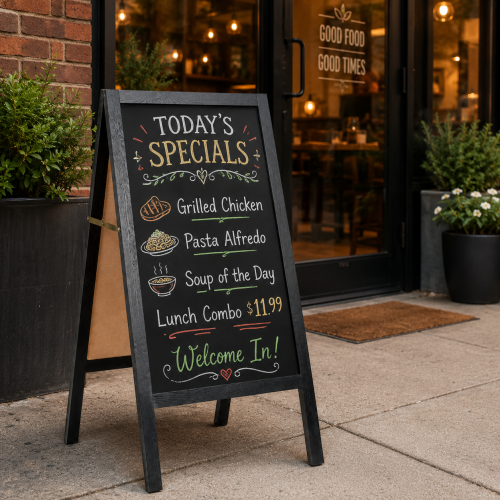 TODAY'S
SPECIALS
Grilled Chicken
Pasta Alfredo
Soup of the Day
Lunch Combo $11.99
Welcome In!
GOOD FOOD
GOOD TIMES